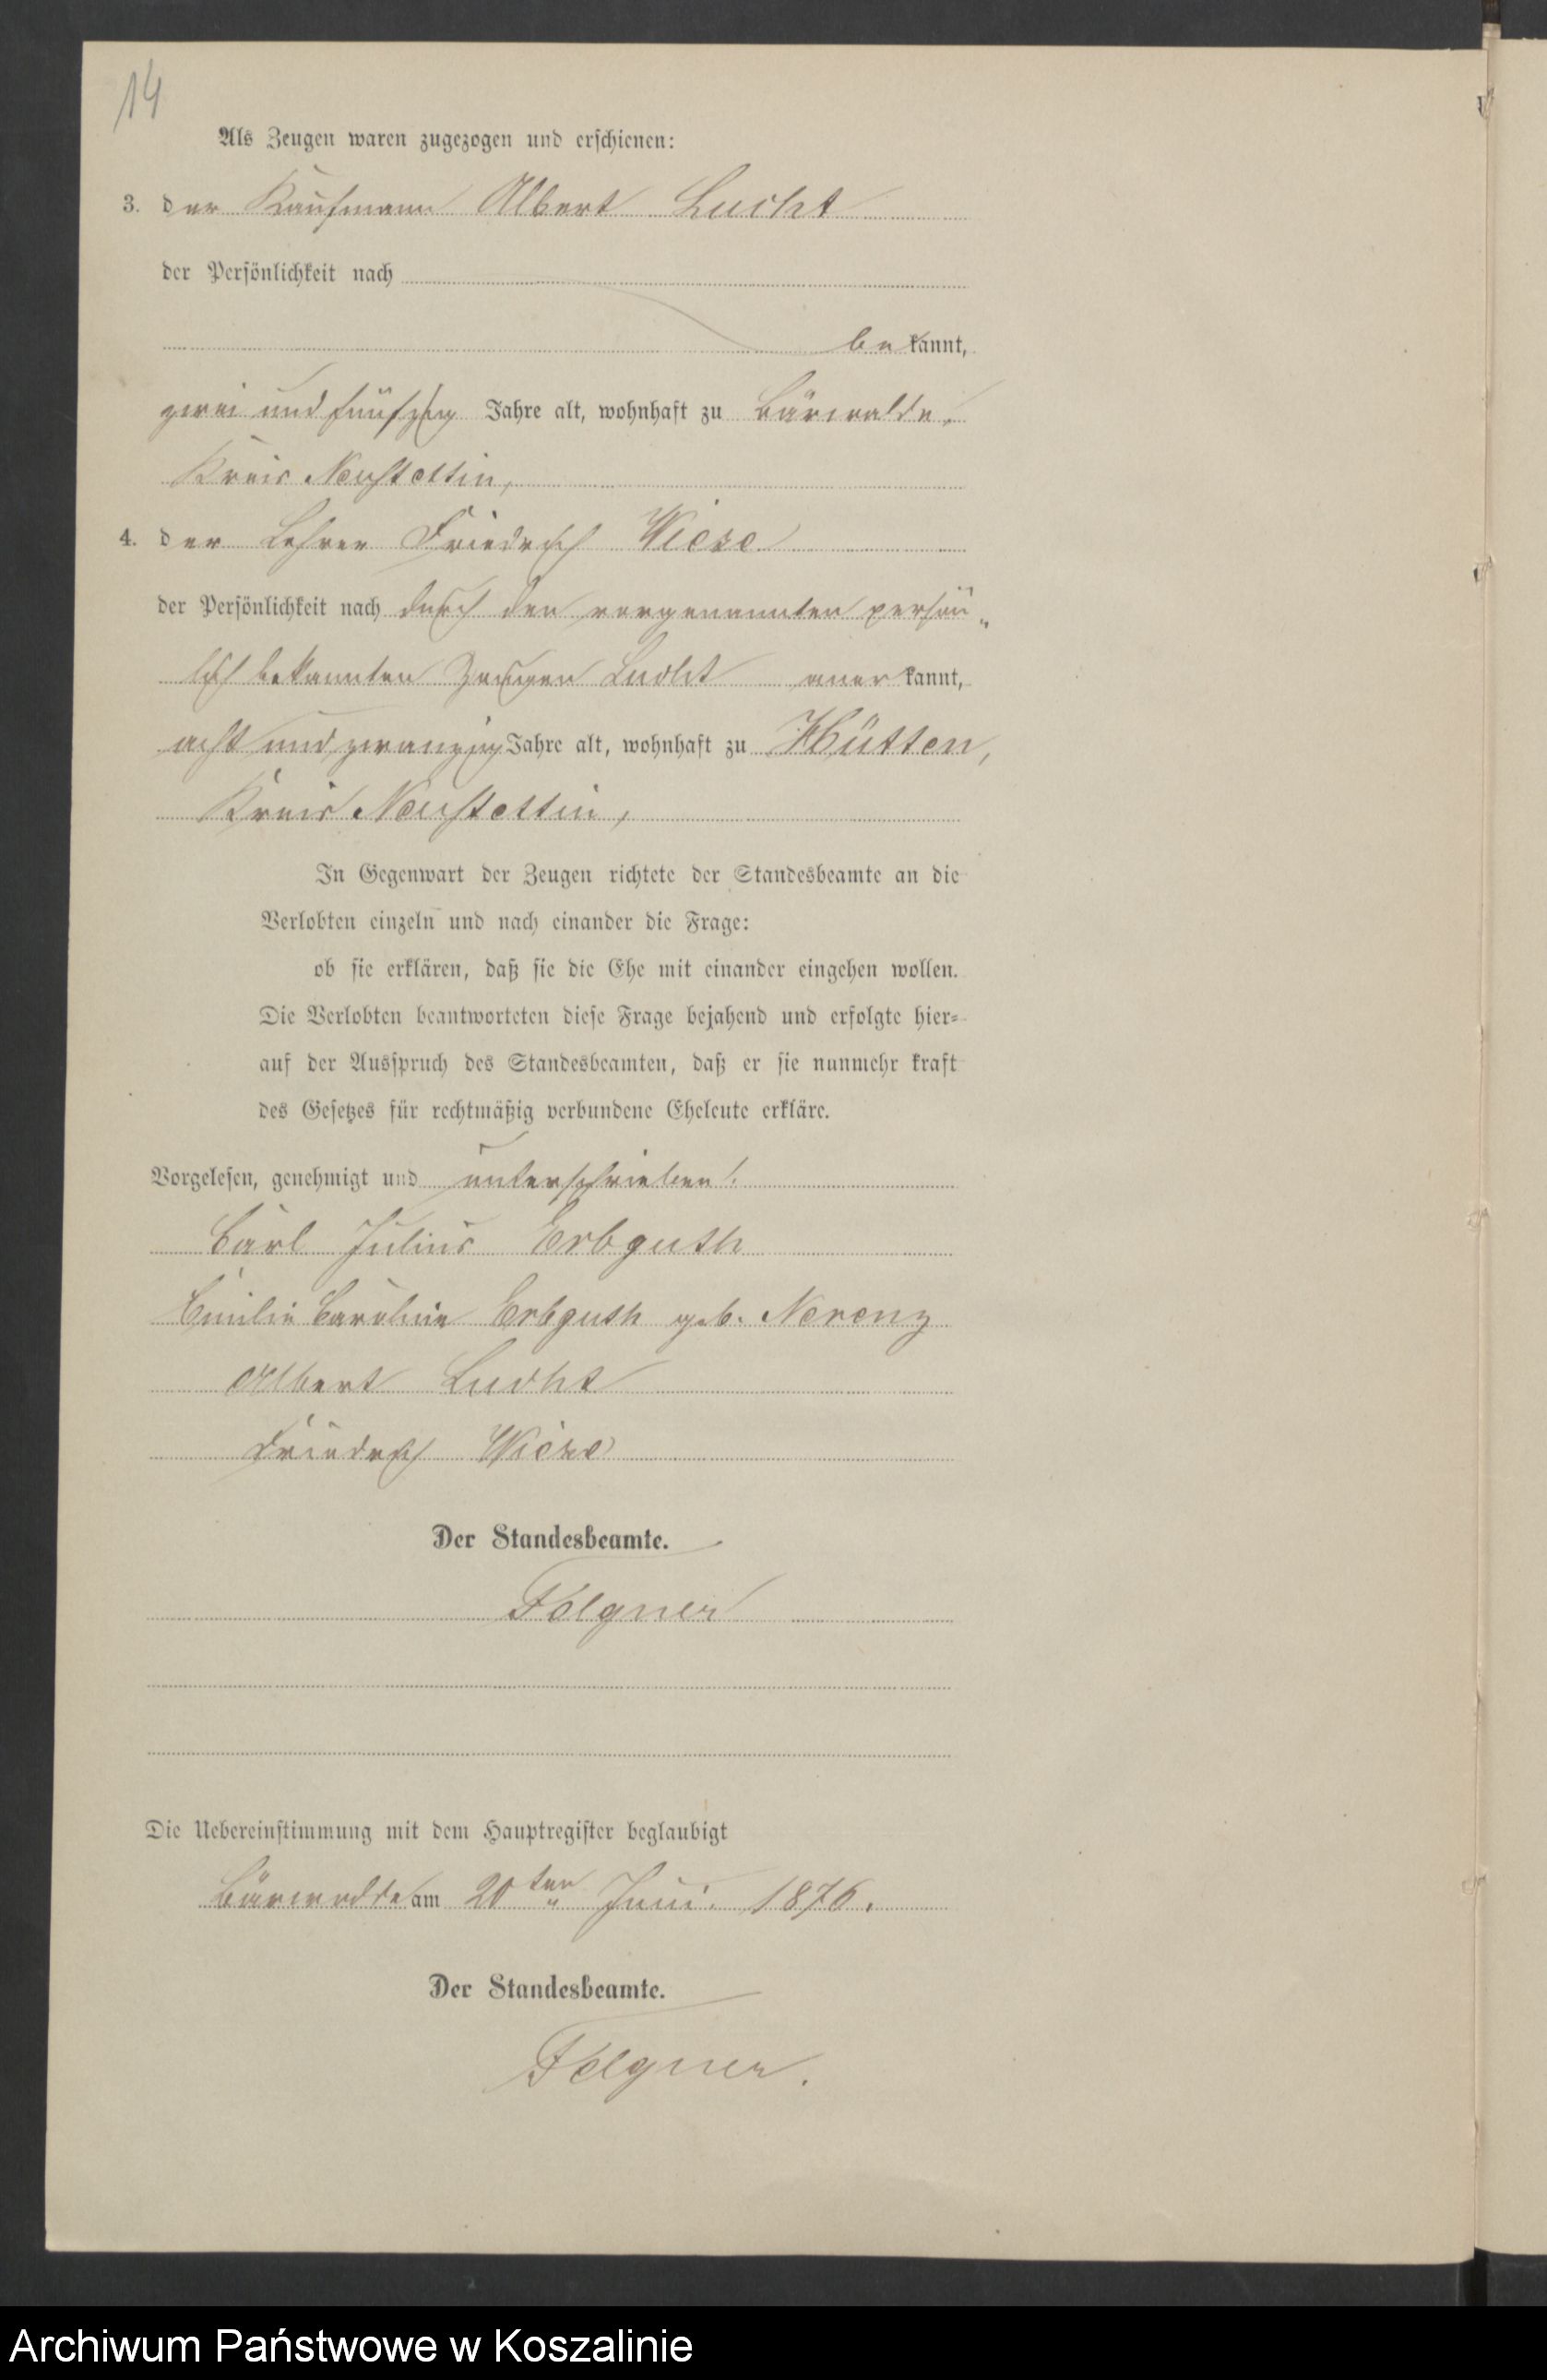 14
Als Zeugen waren zugezogen und erschienen:
3. der Kaufmann Albert Lucht
der Persönlichkeit nach
bekannt,
zwei und fünfzig Jahre alt, wohnhaft zu Bärwalde,
Kreis Neustettin,
4. der Lehrer Friedrich Wiese
der Persönlichkeit nach durch den vorgenannten persön„
lich bekannten Zeugen Lucht anerkannt,
acht und zwanzig Jahre alt, wohnhaft zu Hütten,
Kreis Neustettin,
In Gegenwart der Zeugen richtete der Standesbeamte an die
Verlobten einzeln und nach einander die Frage:
ob sie erklären, daß sie die Ehe mit einander eingehen wollen.
Die Verlobten beantworteten diese Frage bejahend und erfolgte hier-
auf der Ausspruch des Standesbeamten, daß er sie nunmehr kraft
des Gesetzes für rechtmäßig verbundene Eheleute erkläre.
Vorgelesen, genehmigt und unterschrieben!
Carl Julius Erbguth
Emilie Caroline Erbguth geb. Nerenz
Albert Lucht
Friedrich Wiese
Der Standesbeamte.
Folgner
Die Uebereinstimmung mit dem Hauptregister beglaubigt
Bärwalde am 20ten Juni. 1876.
Der Standesbeamte.
Folgner.
Archiwum Państwowe w Koszalinie